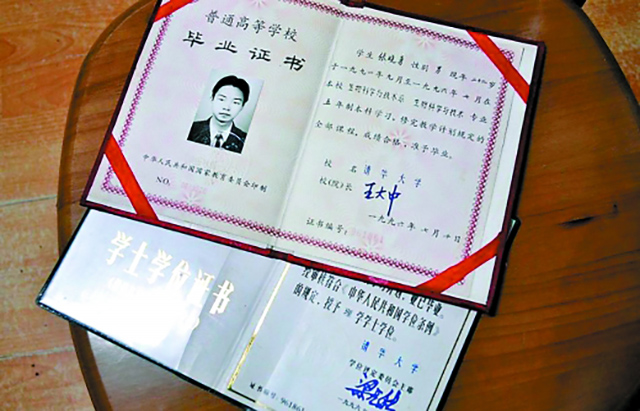 普通高等学校
毕业证书
中华人民共和国国家教育委员会印制
NO.
学生 张晓勇 性别 男 现年 二十四岁
于一九九一年九月至一九九六年七月在
本校 生物科学与技术系 生物科学与技术 专业
五年制本科学习,修完教学计划规定的
全部课程,成绩合格,准予毕业。
校 名 清华大学
校(院)长 王大中
证书编号:
一九九六年七月十日
学士学位证书
业已毕业,
经审核符合《中华人民共和国学位条例》
的规定,授予 理 学学士学位。
清华大学
学位评定委员会主席
证书编号:
一九九六